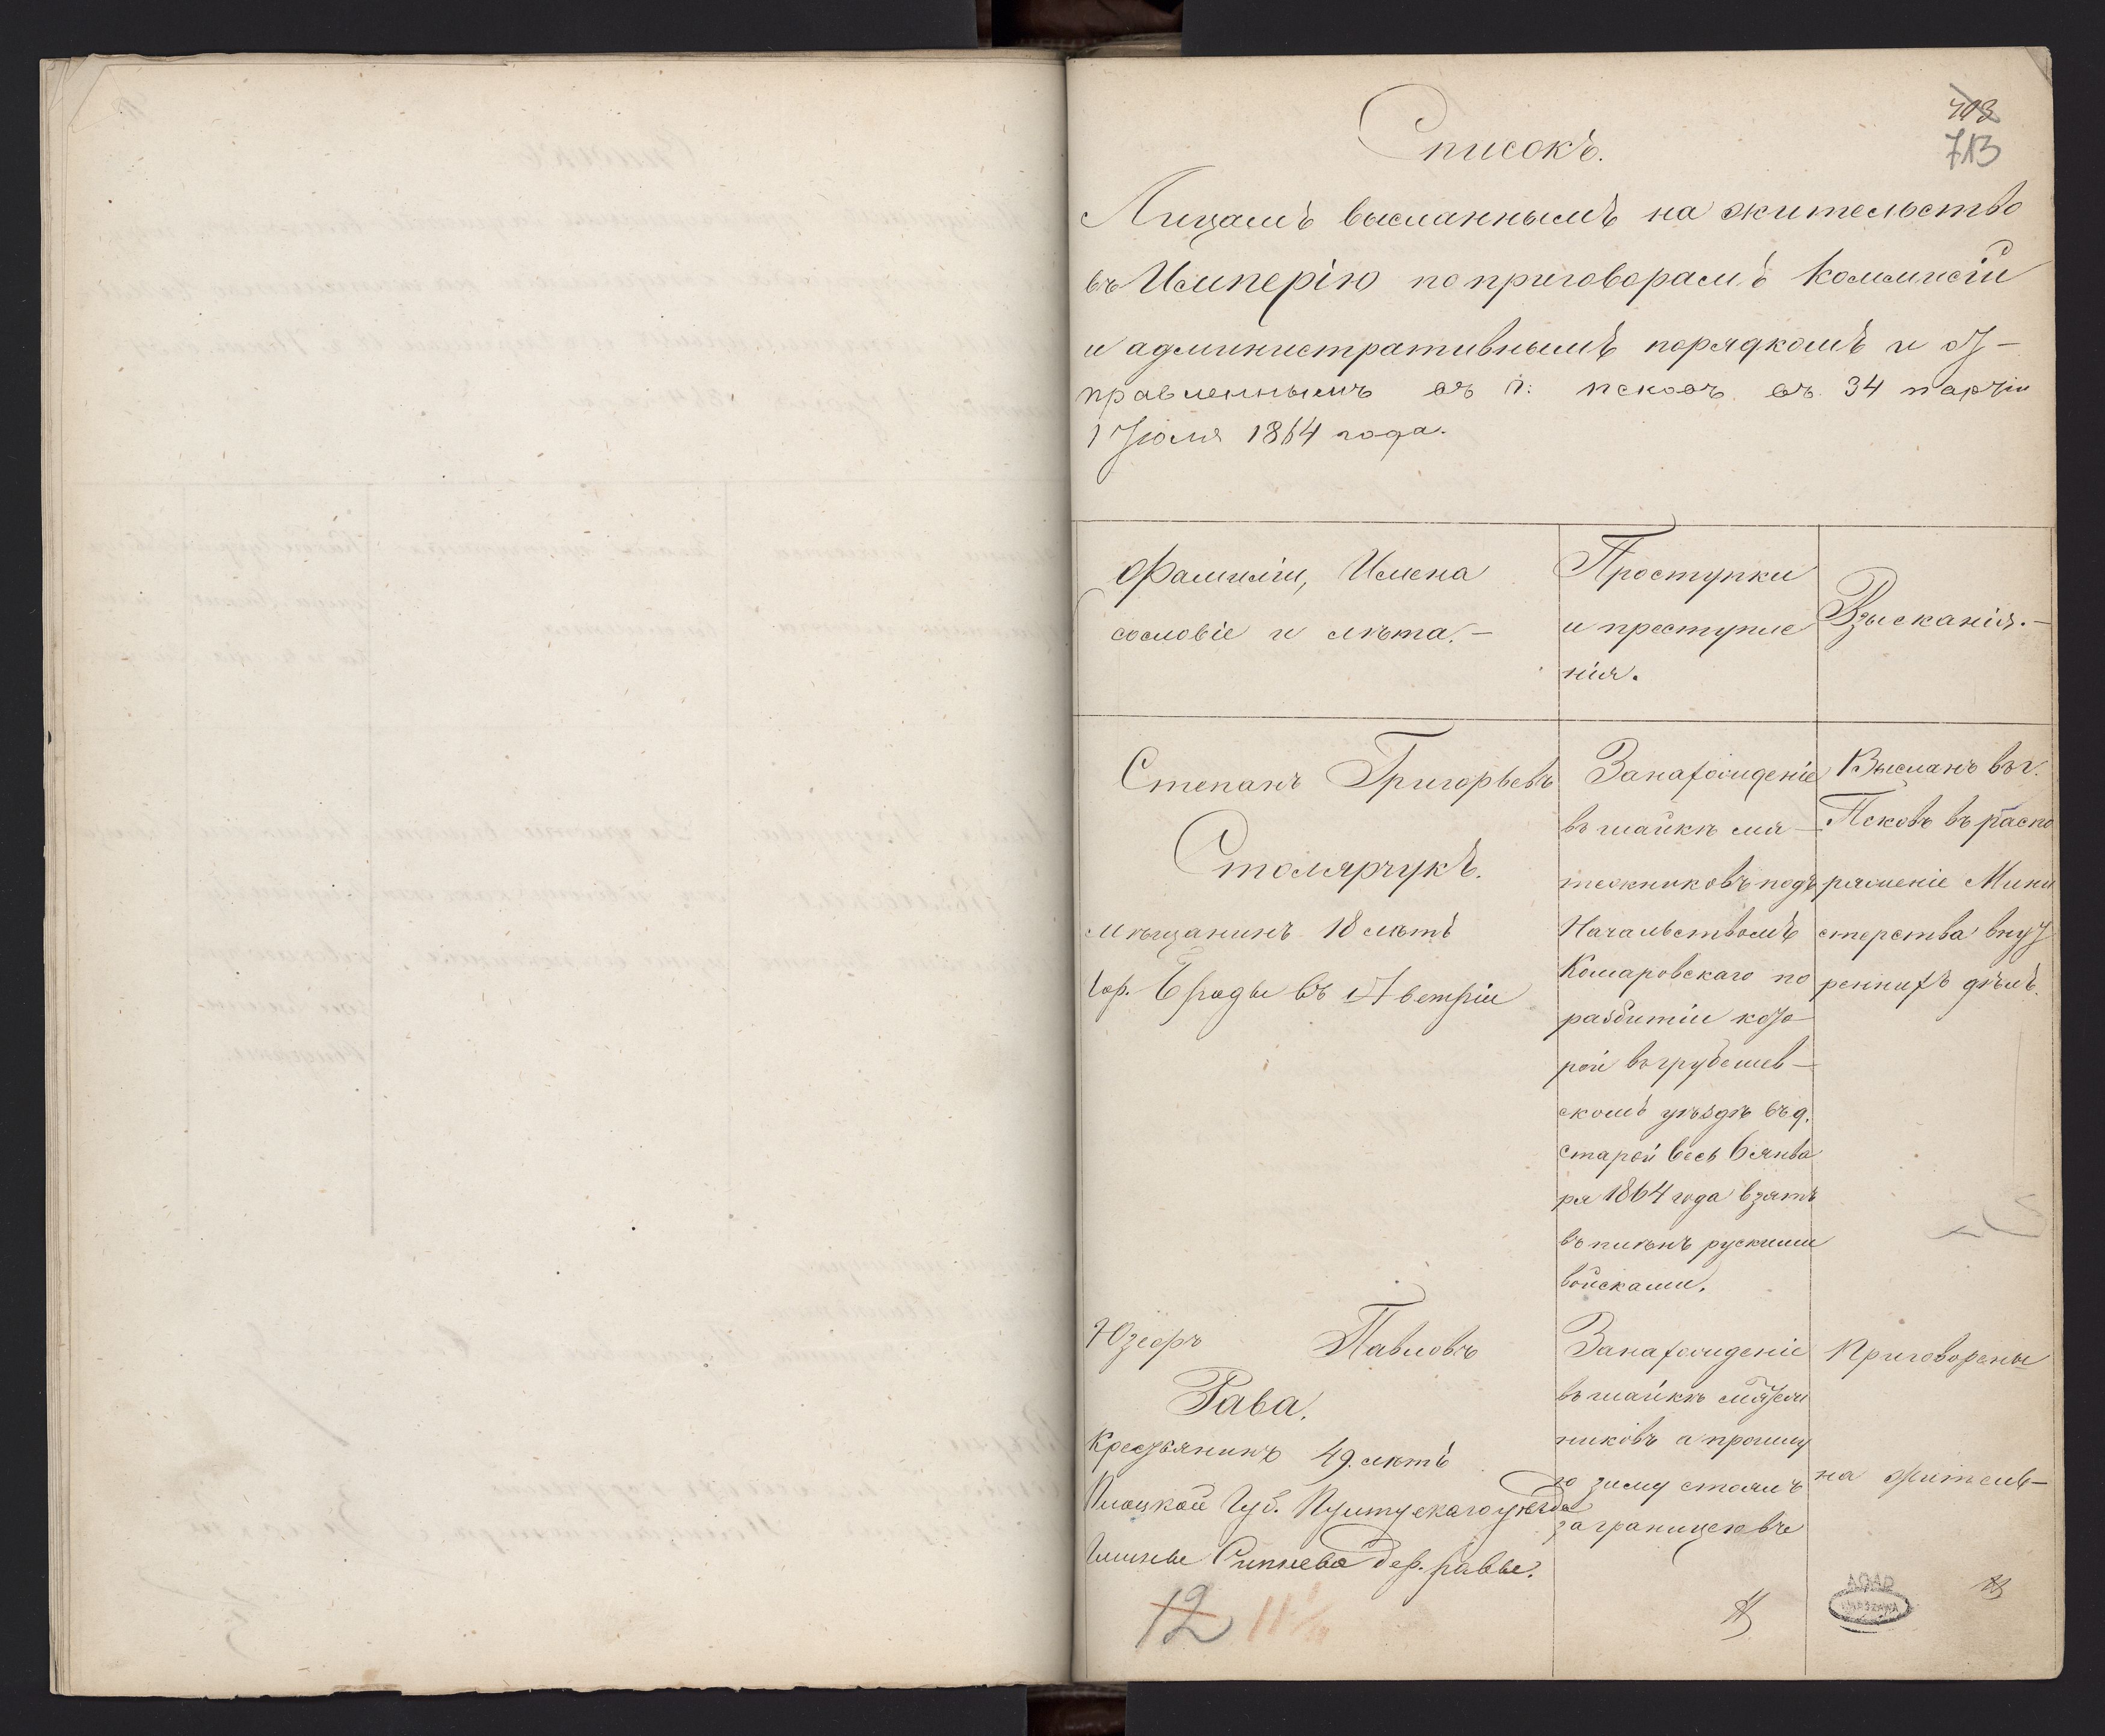 703
713
Списокъ.
Лицамъ высланнымъ на жительство
въ Имперію по приговорамъ Коммисіи
и административнымъ порядкомъ и от-
правленнымъ въ г: Псковъ въ 34 партіи
1 Іюля 1864 года.
Фамиліи, Имена
сословіе и лѣта.-
Проступки
и преступле
нія.
Взысканія.-
Степанъ Григорьевъ
Столярчукъ.
мѣщанинъ 18 лѣтъ
гор. Броды въ Австріи
Занахожденіе
въ шайкѣ мя-
тежниковъ подъ
Начальствомъ
Комаровскаго по
разбитіи кото-
рой въ грубешев-
скомъ уѣздѣ въ д.
старой весь 6 янва
ря 1864 года взятъ
въ плѣнъ рускими
войсками.
Высланъ въ г.
Псковъ въ распо
ряженіе Мини
стерства внут
реннихъ дѣлъ.
Юзефъ Павловъ
Рава.
Крестьянинъ 49. лѣтъ
Плоцкой Губ. Пултускаго уѣзда
Гмины дер. равы.
Занахожденіе
въ шайкѣ мятеж
никовъ а прошлу
ю зиму стоялъ
заграницею въ
Приговорены
на житель-
12 11
AGAD
WARSZAWA